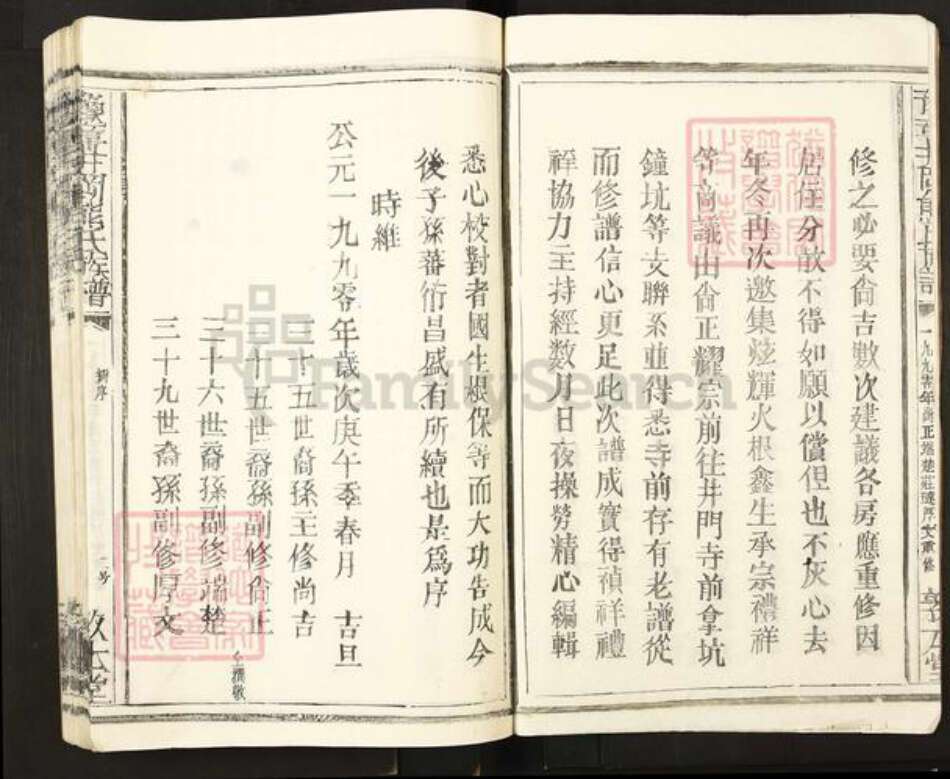 修之必要尙吉數次建議各房應重修因
居住分散不得如願以償但也不灰心去
年冬再次邀集炫輝火根鑫生承宗禮祥
等商議由尙正耀宗前往井門寺前拿坑
鐘坑等支聯系並得悉寺前存有老譜從
而修譜信心更足此次譜成實得禎祥禮
祥協力主持經数月日夜操勞精心編輯
悉心校對者國生根保等而大功告成今
後子孫蕃衍昌盛有所續也是爲序
時維
公元一九九零年歲次庚午季春月 吉旦
三十五世裔孫主修尚吉
三十五世裔孫副修尙正
三十六世裔孫副修端楚
三十九世裔孫副修厚文
仝撰敬
熊氏族譜
新序
二号
FamilySearch